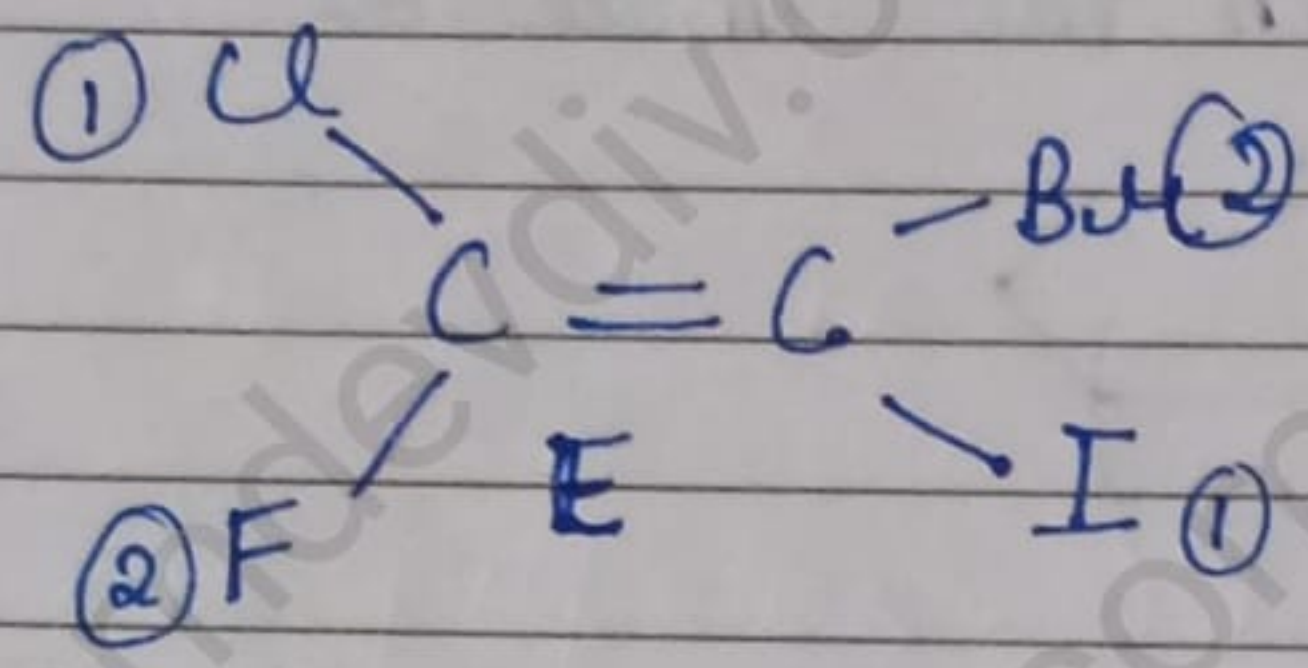 ① Cl
Br ②
C = C
E
② F
I ①